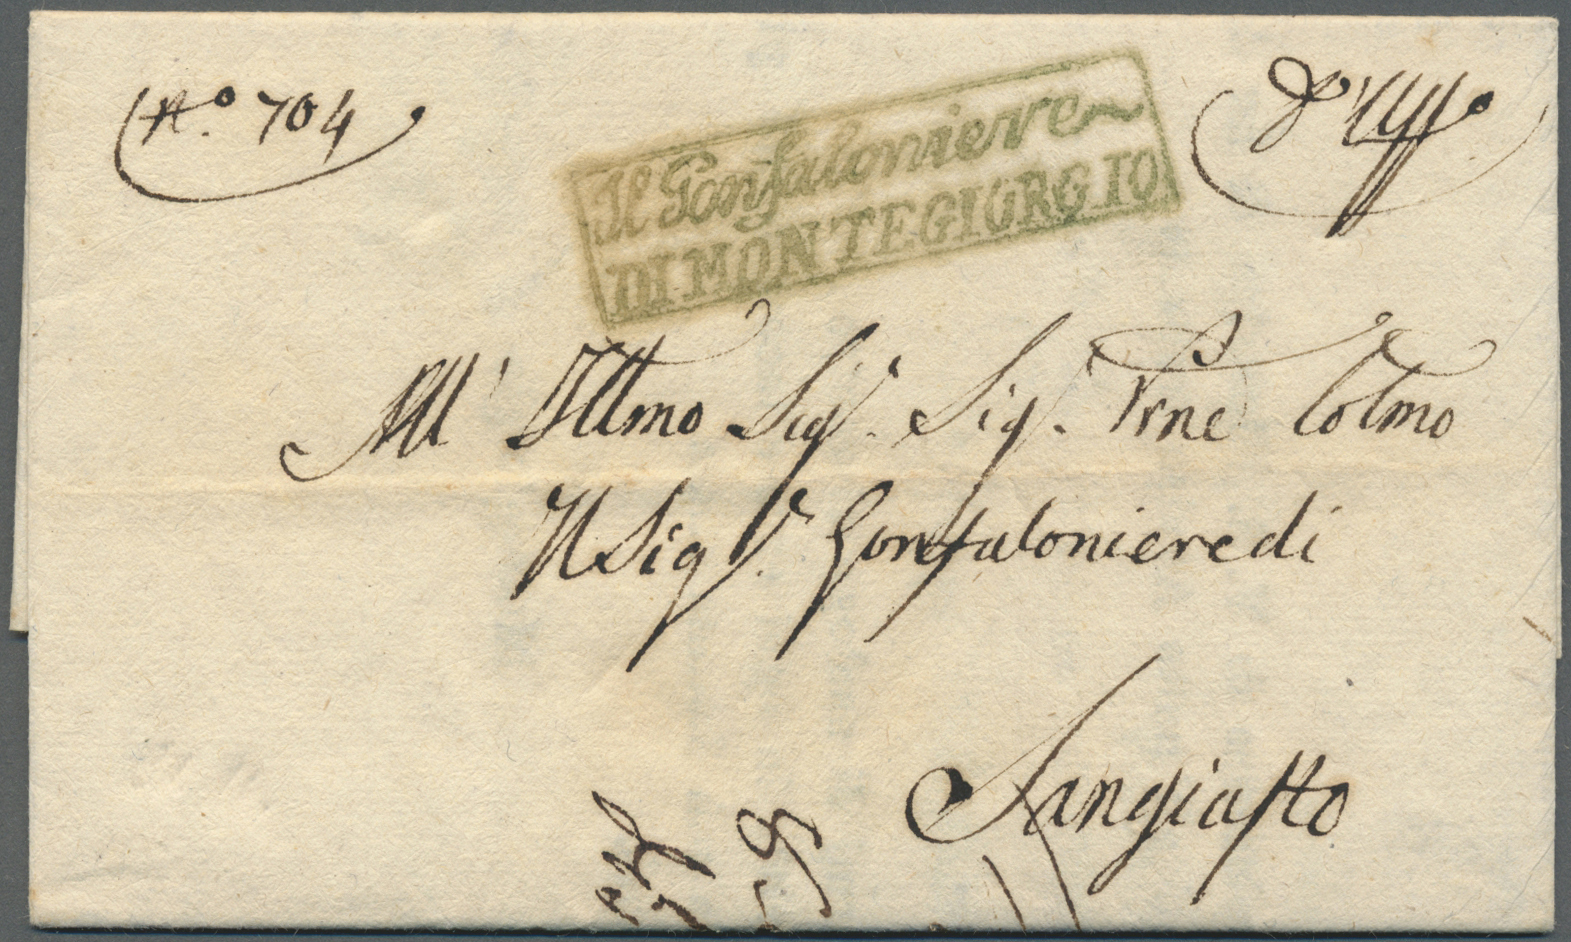 N.º 704
d'Uffº
Il Gonfaloniere
DI MONTEGIORGIO
All' Illmo Sigr. Sig. Prne Colmo
Il Sigr. Gonfaloniere di
Sangiusto